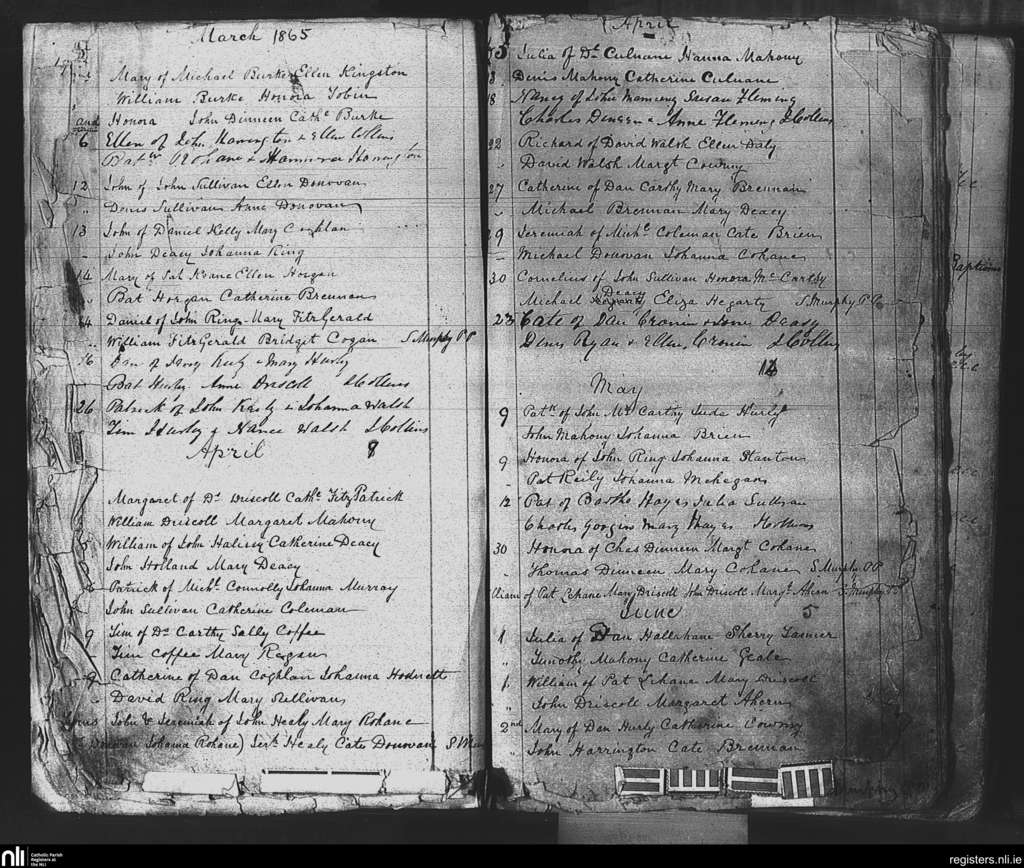 March 1865
Mary of Michael Burke Ellen Kingston
William Burke Honora Tobin
and Honora John Dinneen Cathe Burke
6 Ellen of John Harington & Ellen Collins
Batw Rohane & Hannora
12 John of John Sullivan Ellen Donovan
" Denis Sullivan Anne Donovan
13 John of Daniel Kelly Mary Coghlan
" John Deacy Johanna Ring
14 Mary of Pat Keane Ellen Horgan
" Bat Horgan Catherine Brennan
14 Daniel of John Ring Mary FitzGerald
" William FitzGerald Bridget Cogan J Murphy PP
16 Dan of Mary Hurly
Bat Hurly Anne Driscoll J Collins
26 Patrick of John & Johanna Walsh
Tim Hurly & Nance Walsh J Collins
April 8
Margaret of Ds Driscoll Cathe FitzPatrick
William Driscoll Margaret Mahony
5 William of John Halissy Catherine Deacy
John Holland Mary Deacy
Patrick of Michl Connolly Johanna Murray
John Sullivan Catherine Coleman
9 Tim of Ds Carthy Sally Coffee
" Tim Coffee Mary Regan
9 Catherine of Dan Coghlan Johanna Hodnett
" David Ring Mary Sullivan
John & Jeremiah of John Healy Mary Rohane
Donovan Johanna Rohane) Jerh Healy Cate Donovan J Mu
(April
Julia of Ds Culnane Hanna Mahony
Denis Mahony Catherine Culnane
18 Nancy of John Susan Fleming
Charles & Anne Fleming J Collins
22 Richard of David Walsh Ellen Daly
" David Walsh Margt
27 Catherine of Dan Carthy Mary Brennan
" Michael Brennan Mary Deacy
29 Jeremiah of Michl Coleman Cate Brien
" Michael Donovan Johanna Cohane
30 Cornelius of John Sullivan Honora McCarthy
Deacy
Michael Eliza Hegarty J Murphy PP
23 Cate of Dan Cronin & Deasy
Denis Ryan & Ellen Cronin J Collins
May
9 Patk of John McCarthy Jude Hurly
John Mahony Johanna Brien
9 Honora of John Ring Johanna Stanton
" Pat Reily Johanna Mehegan
12 Pat of Bartho Hayes Julia Sullivan
Charles Goggins Mary Hayes J Collins
30 Honora of Chas Dinneen Margt Cohane
" Thomas Dinneen Mary Cohane J Murphy PP
lliam of Pat Lehane Mary Driscoll John Driscoll Margt Ahern J Murphy P
June 5
1 Julia of Dan Hallahane Sherry
" Timothy Mahony Catherine Geale
1 William of Pat Lehane Mary Driscoll
" John Driscoll Margaret Ahern
2nd Mary of Dan Hurly Catherine
" John Harrington Cate Brennan
Baptisms
by
nli Catholic Parish Registers at the NLI
registers.nli.ie